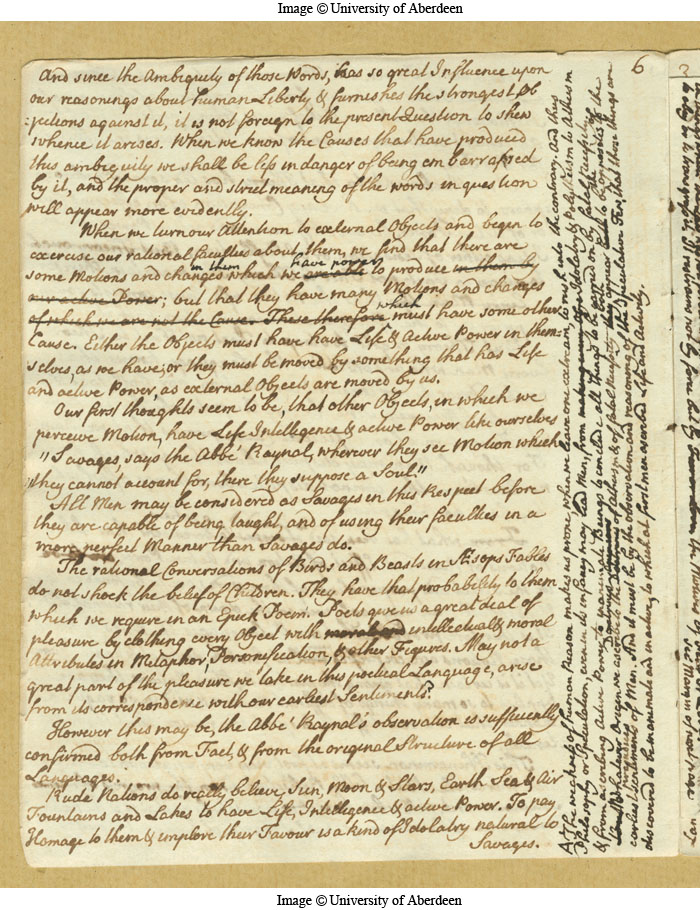 Image © University of Aberdeen
6
And since the Ambiguity of those Words, has so great Influence upon
our reasonings about human Liberty & furnishes the strongest Ob
:jections against it, it is not foreign to the present Question to shew
whence it arises. When we know the Causes that have produced
this ambiguity we shall be less in danger of being embarrassed
by it, and the proper and strict meaning of the words in question
will appear more evidently.
When we turn our Attention to external Objects and begin to
exercise our rational faculties about them, we find that there are
in them have power
some Motions and changes which we are able to produce in them by
our active Power; but that they have many Motions and changes
which
of which we are not the Cause. These therefore must have some other
Cause. Either the Objects must have have Life & Active Power in them:
selves, as we have; or they must be moved by something that has Life
and active Power, as external Objects are moved by us.
Our first thoughts seem to be, that other Objects, in which we
perceive Motion, have Life Intelligence & active Power like ourselves
"Savages, says the Abbé Raynal, wherever they see Motion which
"they cannot account for, there they suppose a Soul."
All Men may be considered as Savages in this Respect before
they are capable of being taught, and of using their faculties in a
more perfect Manner than Savages do.
The rational Conversations of Birds and Beasts in Æsops Fables
do not shock the belief of Children. They have that probability to them
which we require in an Epick Poem. Poets give us a great deal of
pleasure by clothing every Object with intellectual & moral
Attributes in Metaphor, Personification, & other Figures. May not a
great part of the pleasure we take in this poetical Language, arise
from its correspondence with our earliest Sentiments?
However this may be, the Abbé Raynal's observation is sufficiently
confirmed both from Fact, & from the original Structure of all
Languages.
Rude Nations do really believe, Sun, Moon & Stars, Earth Sea & Air
Fountains and Lakes to have Life, Intelligence & active Power. To pay
Homage to them & implore their Favour is a kind of Idolatry natural to
Savages.
The weakness of human Reason makes us prone, when we leave one extream, to rush into the contrary. And thus
Philosophy or Speculation, even in its infancy may lead Men, from Idolatry & Polytheism to Atheism
& from ascribing active Power to inanimate Beings to conclude all things to be carried on by fatal Necessity.
Whatever Origin we ascribe to the of Atheism & of fatal Necessity they appear to be of the
earliest Sentiments of Men. And it must be by the observation and reasoning of the Speculative Few, that those things are
discovered to be inanimate and inactive, to which at first men ascribed Life and Activity.
Image © University of Aberdeen